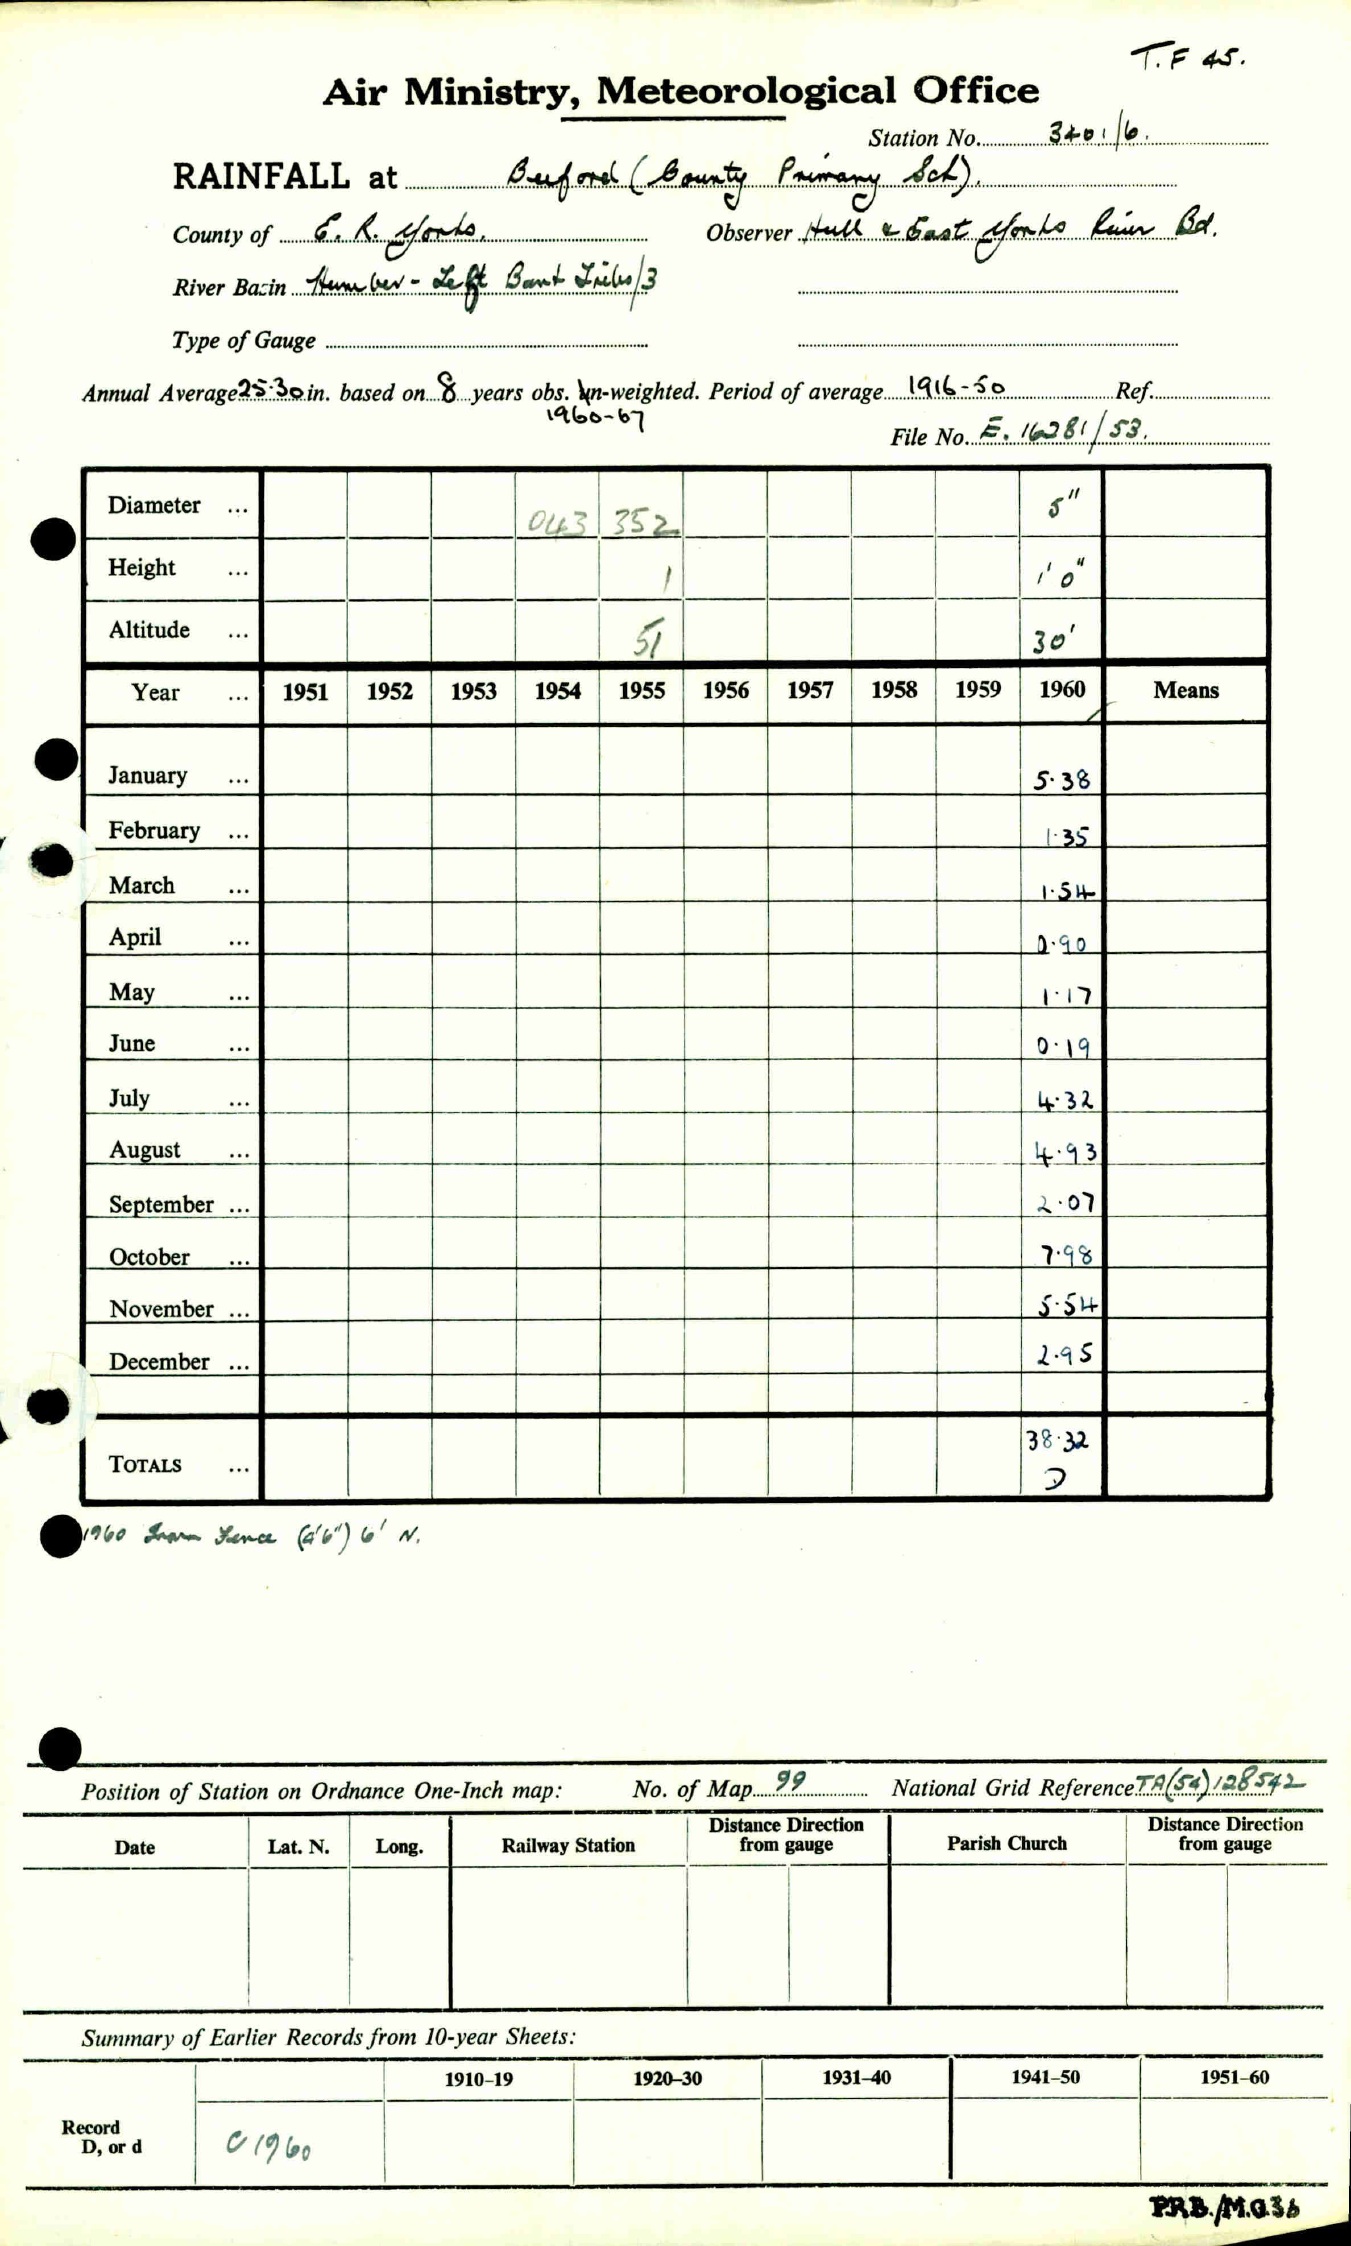 T.F 45.
Air Ministry, Meteorological Office
Station No. 3401/6.
RAINFALL at Beeford (County Primary Sch).
County of E. R. Yorks. Observer Hull & East Yorks River Bd.
River Basin Humber - Left Bank Tribs/3
Type of Gauge
Annual Average 25·30 in. based on 8 years obs. Un-weighted. Period of average 1916-50 Ref.
1960-67
File No. E. 16281/53.
Diameter ... 043 352 5"
Height ... 1 1' 0"
Altitude ... 51 30'
Year ... 1951 1952 1953 1954 1955 1956 1957 1958 1959 1960 Means
January ... 5·38
February ... 1·35
March ... 1·54
April ... 0·90
May ... 1·17
June ... 0·19
July ... 4·32
August ... 4·93
September ... 2·07
October ... 7·98
November ... 5·54
December ... 2·95
TOTALS ... 38·32
D
1960 Fence 6' N.
Position of Station on Ordnance One-Inch map: No. of Map 99 National Grid Reference TA(54)128542
Date Lat. N. Long. Railway Station Distance Direction from gauge Parish Church Distance Direction from gauge
Summary of Earlier Records from 10-year Sheets:
1910–19 1920–30 1931–40 1941–50 1951–60
Record
D, or d C 1960
P.R.B./M.O.36